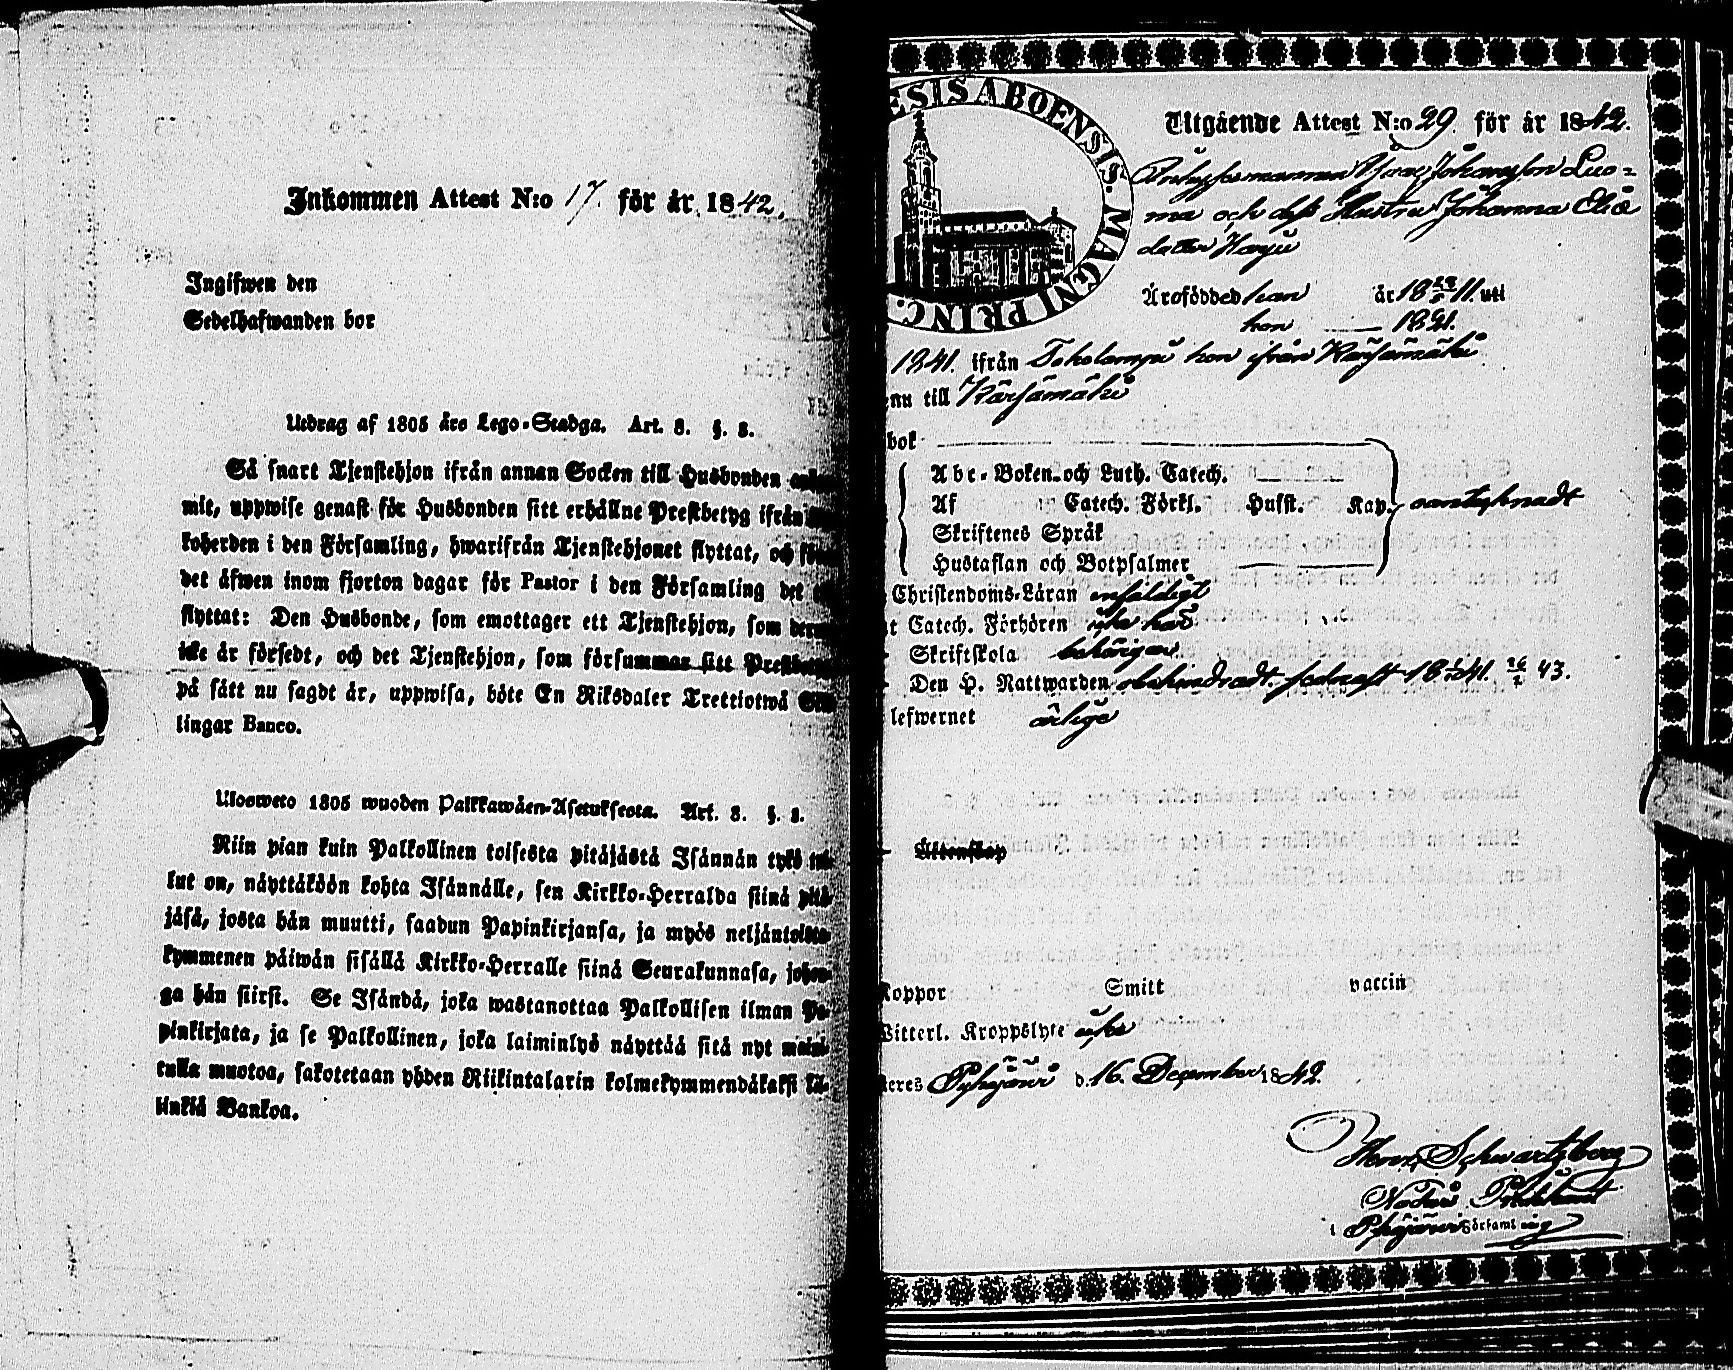 Inkommen Attest N:o 17. för år 1842.
Ingifwen den
Sedelhafwanden bor
Utdrag af 1805 års Lego-Stadga. Art. 8. §. 8.
Så snart Tjenstehjon ifrån annan Socken till Husbonden
mit, uppwise genast för Husbonden sitt erhållne Prestbetyg ifrån
koherden i den Församling, hwarifrån Tjenstehjonet flyttat, och
det äfwen inom fjorton dagar för Pastor i den Församling det
flyttat: Den Husbonde, som emottager ett Tjenstehjon, som
icke är försedt, och det Tjenstehjon, som försummar sitt
på sätt nu sagdt är, uppwisa, böte En Riksdaler Trettiotwå
lingar Banco.
Ulosweto 1805 wuoden Palkkawäen-Asetuksesta. Art. 8. §. 8.
Niin pian kuin Palkollinen toisesta pitäjästä Isännän tykö
lut on, näyttäköön kohta Isännälle, sen Kirkko-Herralda siinä
jäsä, josta hän muutti, saadun Papinkirjansa, ja myös neljäntoista
kymmenen päiwän sisällä Kirkko-Herralle siinä Seurakunnasa,
ga hän siirsi. Se Isändä, joka wastanottaa Palkollisen ilman
pinkirjata, ja se Palkollinen, joka laiminlyö näyttää sitä nyt
tulla muotoa, sakotetaan yhden Riikintalarin kolmekymmendäkaksi
linkiä Bankoa.
ESIS ABOENSIS. MAGNI PRINC.
Utgående Attest N:o 29. för år 1842.
Johansson Luo-
ma och dess Hustru Johanna
dotter Harju
Ärofödded han år 18 11. uti
hon 1821.
1841. ifrån Toholampi hon ifrån Kärsämäki
nu till Kärsämäki
bok
Abc-Boken och Luth. Catech.
Af Catech. Förkl. Husst. Kap. oantecknadt
Skriftenes Språk
Hustaflan och Botpsalmer
Christendoms-Läran enfaldigt
t Catech. Förhören
Skriftskola behörigen
Den H. Nattwarden obehindradt, sednast 18 41. 43.
lefwernet ärlige
Äktenskap
Koppor Smitt vaccin
Witterl. Kroppslyte icke
teres Pyhäjärvi d. 16. December 1842.
Schwartzberg
i Pyhäjärvi Församling